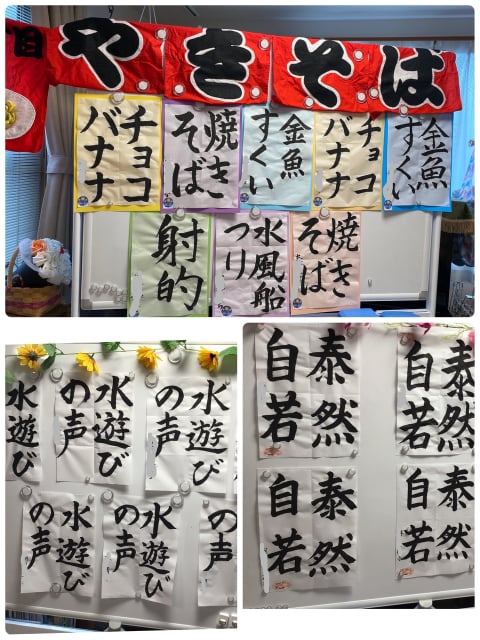 やきそば
チョコ
バナナ
焼き
そば
金魚
すくい
チョコ
バナナ
金魚
すくい
射的
水風船
つり
焼き
そば
水遊び
水遊び
の声
水遊び
の声
水遊び
の声
水遊び
の声
の声
泰然
自若
泰然
自若
泰然
自若
泰然
自若